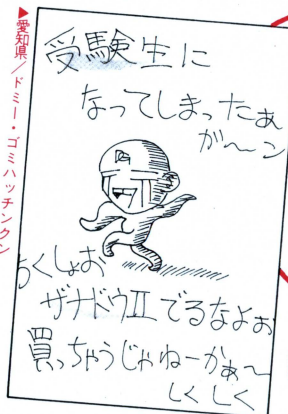 ▶愛知県／ドミー・ゴミハッチンクン
受験生に
なってしまったぁ
が〜ン
ちくしょお
ザナドゥⅡでるなよぉ
買っちゃうじゃねーかぁ〜
しくしく